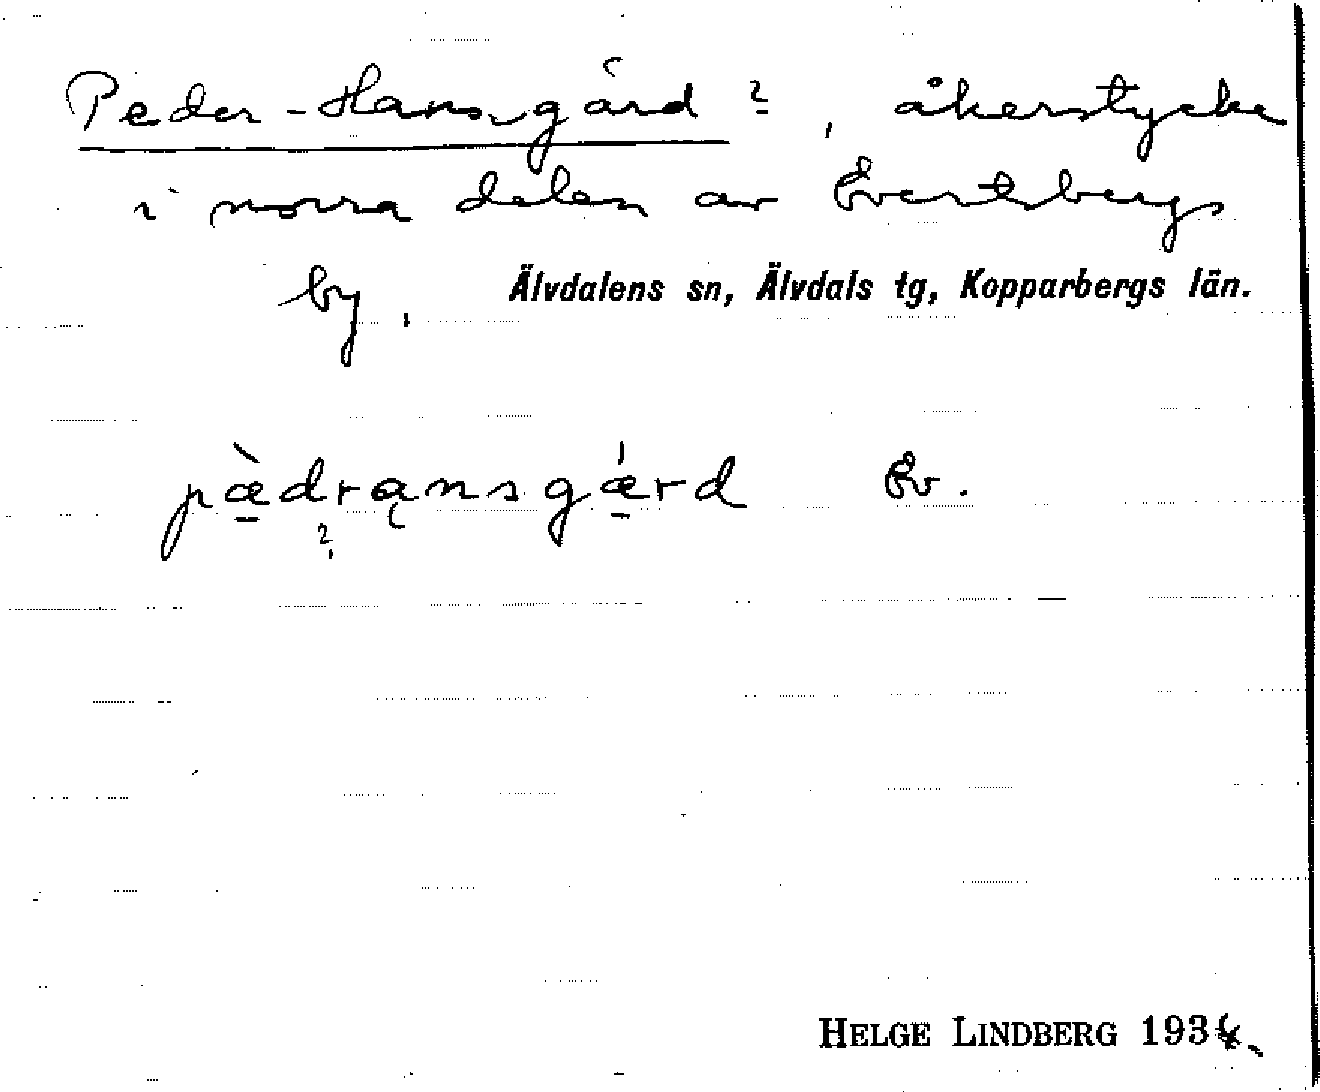 Peder-Hansgård ?, åkerstycke
i norra delen av Evertsbergs
by, Älvdalens sn, Älvdals tg, Kopparbergs län.
pæ̀drąnsgǽrd Ev.
?
HELGE LINDBERG 1934.